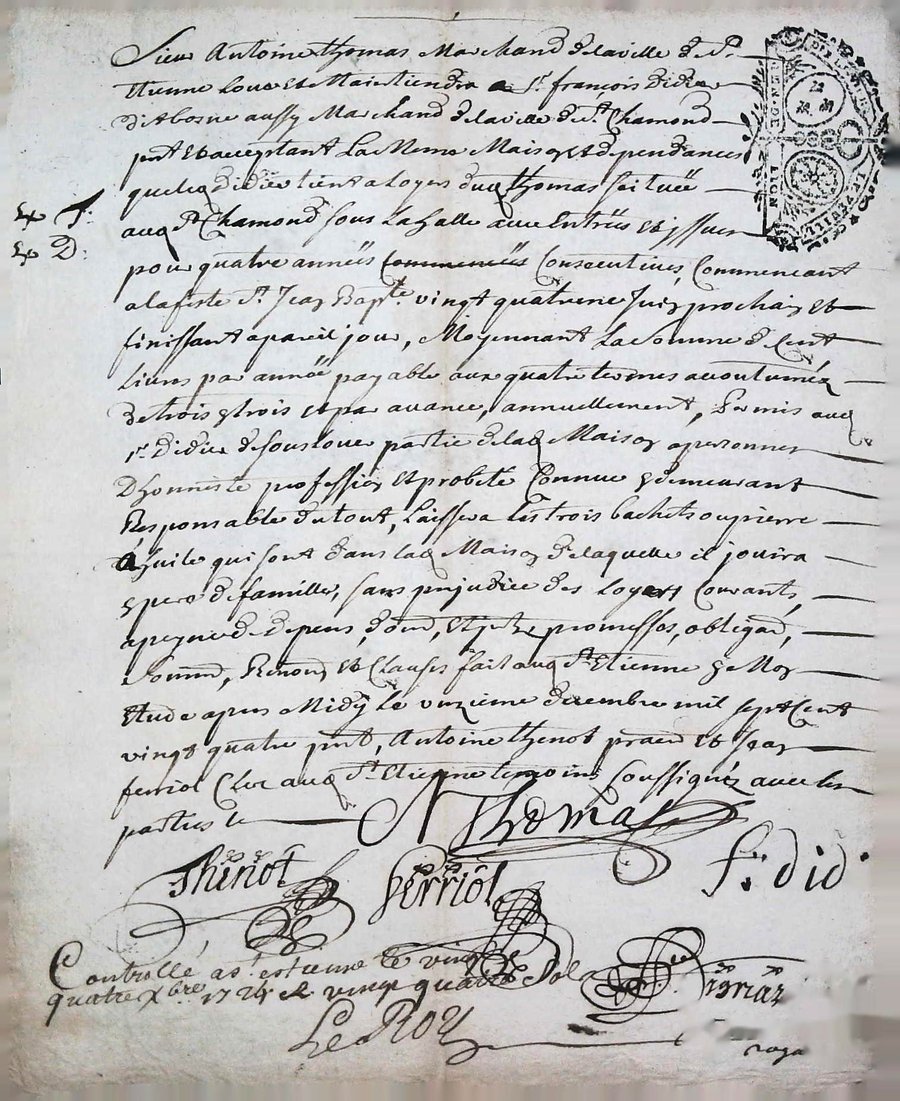 Sieur Antoine Thomas Marchand delaville de St
Etienne Loue et Maintiendra a Sr. françois Didier
aussy Marchand delaville de St. Chamond
pnt et acceptant La Meme Maison et dependances
queledq Didier tient a Loyer dudq thomas scituée
audq St Chamond sous La halle avec Entrées et jssues
pour quatre années commencées Consecutives, Commencant
alafeste St. Jean Bapte vingt quatrieme Juin prochain et
finissant apareil jour, Moyennant La somme de Cent
Livres par année payable aux quatre termes accoutumés
de trois en trois et par avance, annuellement, Permis audq
sr. Didier de souslouer partie de ladq Maison apersonnes
Dhonneste profession et probité Connue en demeurant
Responsable du tout, Laissera Les trois bachets ou pierre
A huile qui sont dans ladq Maison de laquelle il jouira
en pere de famille, sans prejudice des Loyers Courants,
apeyne de depens, promesses, obligaons,
Soumns, Renons et Clauses fait audq St Etienne en Mon
Etude apres Midy Le onzieme decembre mil sept Cent
vingt quatre pnt, Antoine thenot praen et Jean
ferriol Clerc audq St. Etienne temoins soussignés avec les
parties
A Thomas
Thenot
ferriol
f. didi
Controllé a st. estienne le vingt
quatre xbre 1724 R vingt quatre Sol
LeRoy